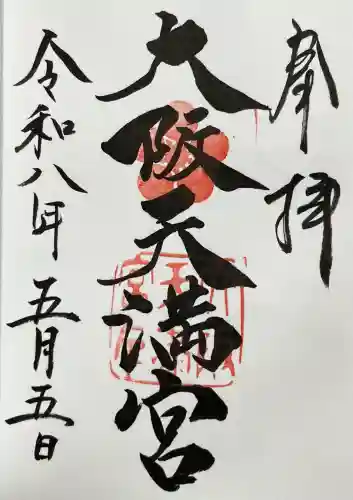 奉拝
大阪天満宮
令和八年五月五日